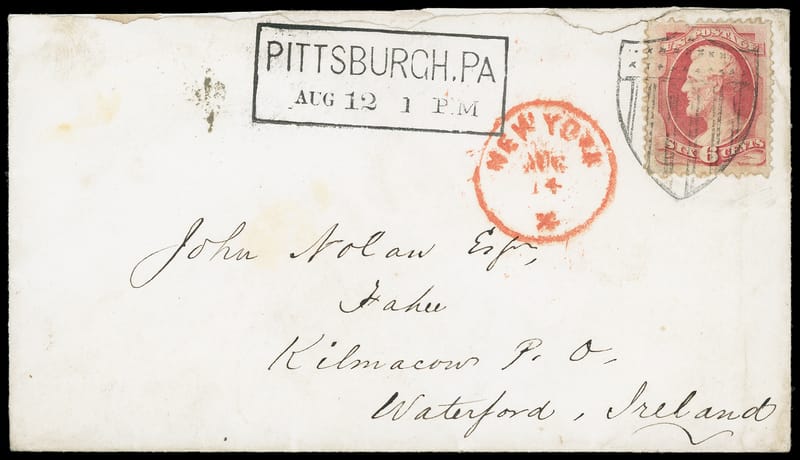 PITTSBURGH, PA
AUG 12 1 P M
U.S. POSTAGE
SIX 6 CENTS
NEW YORK
AUG
14
John Nolan Esqr,
Fahee
Kilmacow P. O,
Waterford, Ireland